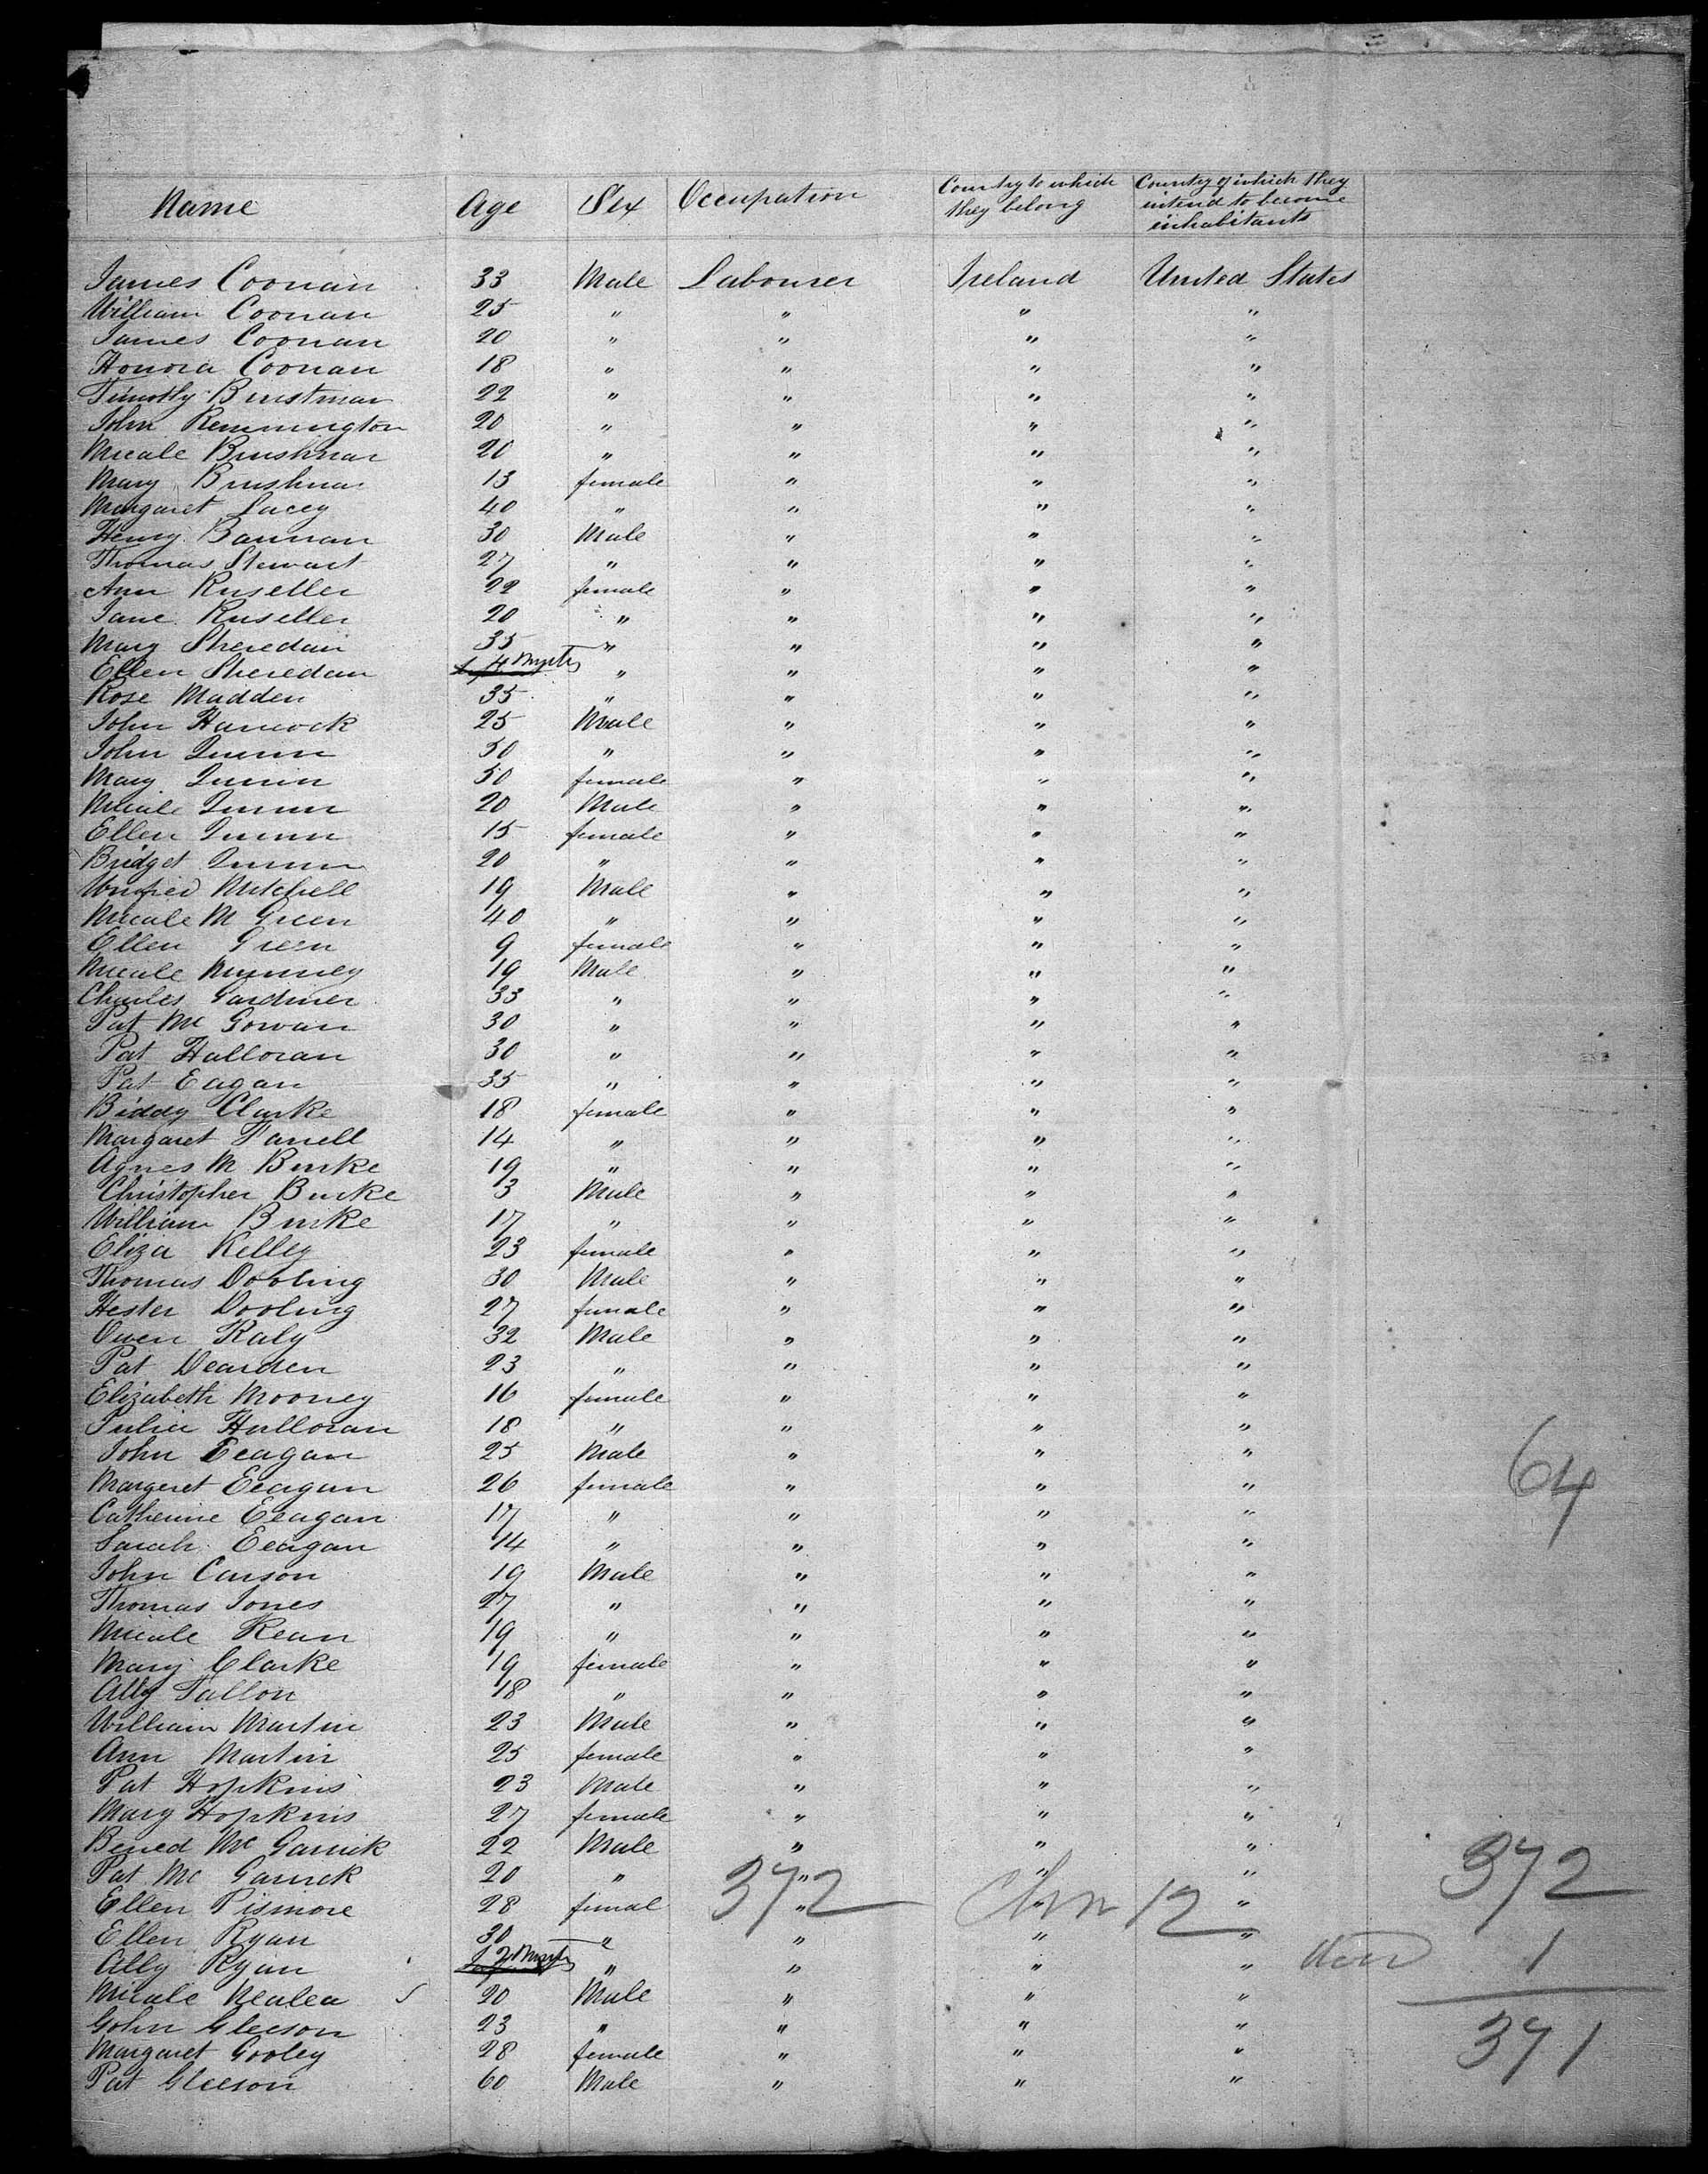 Name Age Sex Occupation Country to which they belong Country of which they intend to become inhabitants
James Coonan 33 Male Labourer Ireland United States
William Coonan 25 " " " "
James Coonan 20 " " " "
Honora Coonan 18 " " " "
Timothy Brustman 22 " " " "
John Remmington 20 " " " "
Micale Brushnan 20 " " " "
Mary Brushnan 13 female " " "
Margaret Lacey 40 " " " "
Henry Bannan 30 Male " " "
Thomas Stewart 27 " " " "
Ann Ruseller 22 female " " "
Jane Ruseller 20 " " " "
Mary Sheredan 35 " " " "
Ellen Sheredan 4 Mnths " " " "
Rose Madden 35 " " " "
John Hancock 25 Male " " "
John Quinn 50 " " " "
Mary Quinn 50 female " " "
Micale Quinn 20 Male " " "
Ellen Quinn 15 female " " "
Bridget Quinn 20 " " " "
Mitchell 19 Male " " "
Micale M Green 40 " " " "
Ellen Green 9 female " " "
Micale Nunney 19 Male " " "
Charles Gardiner 33 " " " "
Pat Mc Gowan 30 " " " "
Pat Halloran 30 " " " "
Pat Eagan 35 " " " "
Biddy Clarke 18 female " " "
Margaret Farrell 14 " " " "
Agnes M Burke 19 " " " "
Christopher Burke 3 Male " " "
William Burke 17 " " " "
Eliza Kelley 23 female " " "
Thomas Dooling 30 Male " " "
Hester Dooling 27 female " " "
Owen Raly 32 Male " " "
Pat Dearden 23 " " " "
Elizabeth Mooney 16 female " " "
Julia Halloran 18 " " " "
John Eeagan 25 Male " " "
Margeret Eeagan 26 female " " " 64
Catherine Eeagan 17 " " " "
Sarah Eeagan 14 " " " "
John Carson 19 Male " " "
Thomas Jones 27 " " " "
Micale Kean 19 " " " "
Mary Clarke 19 female " " "
Ally Fallon 18 " " " "
William Martin 23 Male " " "
Ann Martin 25 female " " "
Pat Hopkins 23 Male " " "
Mary Hopkins 27 female " " "
Bened Mc Garrick 22 Male " " "
Pat Mc Garrick 20 " " " " 372
Ellen Pismore 28 femal " " " 372 12
Ellen Ryan 30 " " " "
Ally Ryan 2 Mnths " " " " 1
Micale Nealea 20 Male " " "
John Gleeson 23 " " " "
Margaret Gooley 28 female " " " 371
Pat Gleeson 60 Male " " "